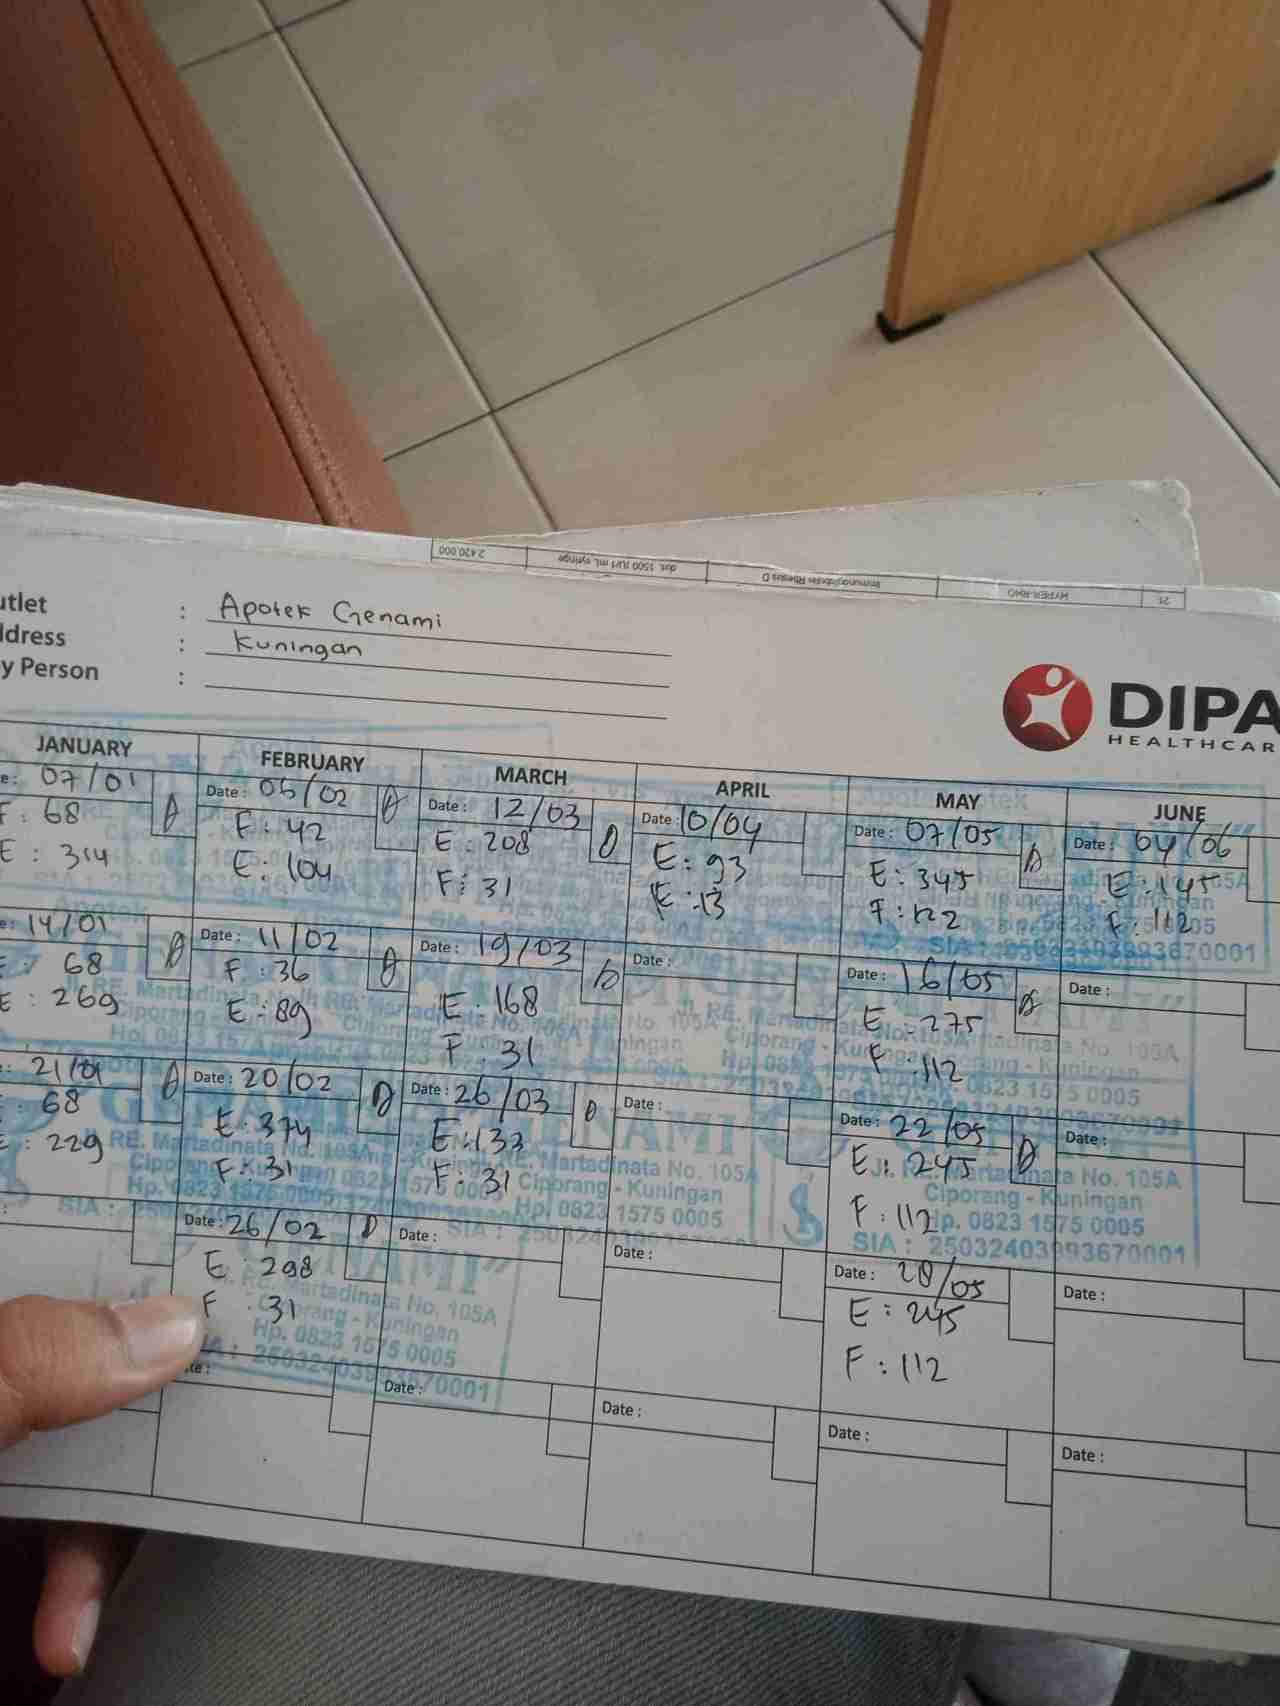 2.420.000
dus, 1500 IU/1 mL syringe
Immunoglobulin Rhesus D
HYPER-RHO
21
utlet : Apotek Genami
ddress : Kuningan
y Person :
DIPA
HEALTHCAR
JANUARY FEBRUARY MARCH APRIL MAY JUNE
e: 07/01 Date : 05/02 Date : 12/03 Date : 10/04 Date : 07/05 Date : 04/06
F: 68 F: 42 E: 208 E: 93 E: 345 E: 145
E: 314 E: 104 F: 31 F: 13 F: 122 F: 112
e: 14/01 Date : 11/02 Date : 19/03 Date : Date : 16/05 Date :
F: 68 F: 36 E: 168 E: 275
E: 269 E: 89 F: 31 F: 112
e: 21/01 Date : 20/02 Date : 26/03 Date : Date : 22/05 Date :
68 E: 374 E: 133 E: 245
E: 229 F: 31 F: 31 F: 112
Date : 26/02 Date : Date : Date : 28/05 Date :
E: 298 E: 245
F: 31 F: 112
te : Date : Date : Date : Date :
GENAMI"
Jl. RE. Martadinata No. 105A
Ciporang - Kuningan
Hp. 0823 1575 0005
SIA : 25032403993670001